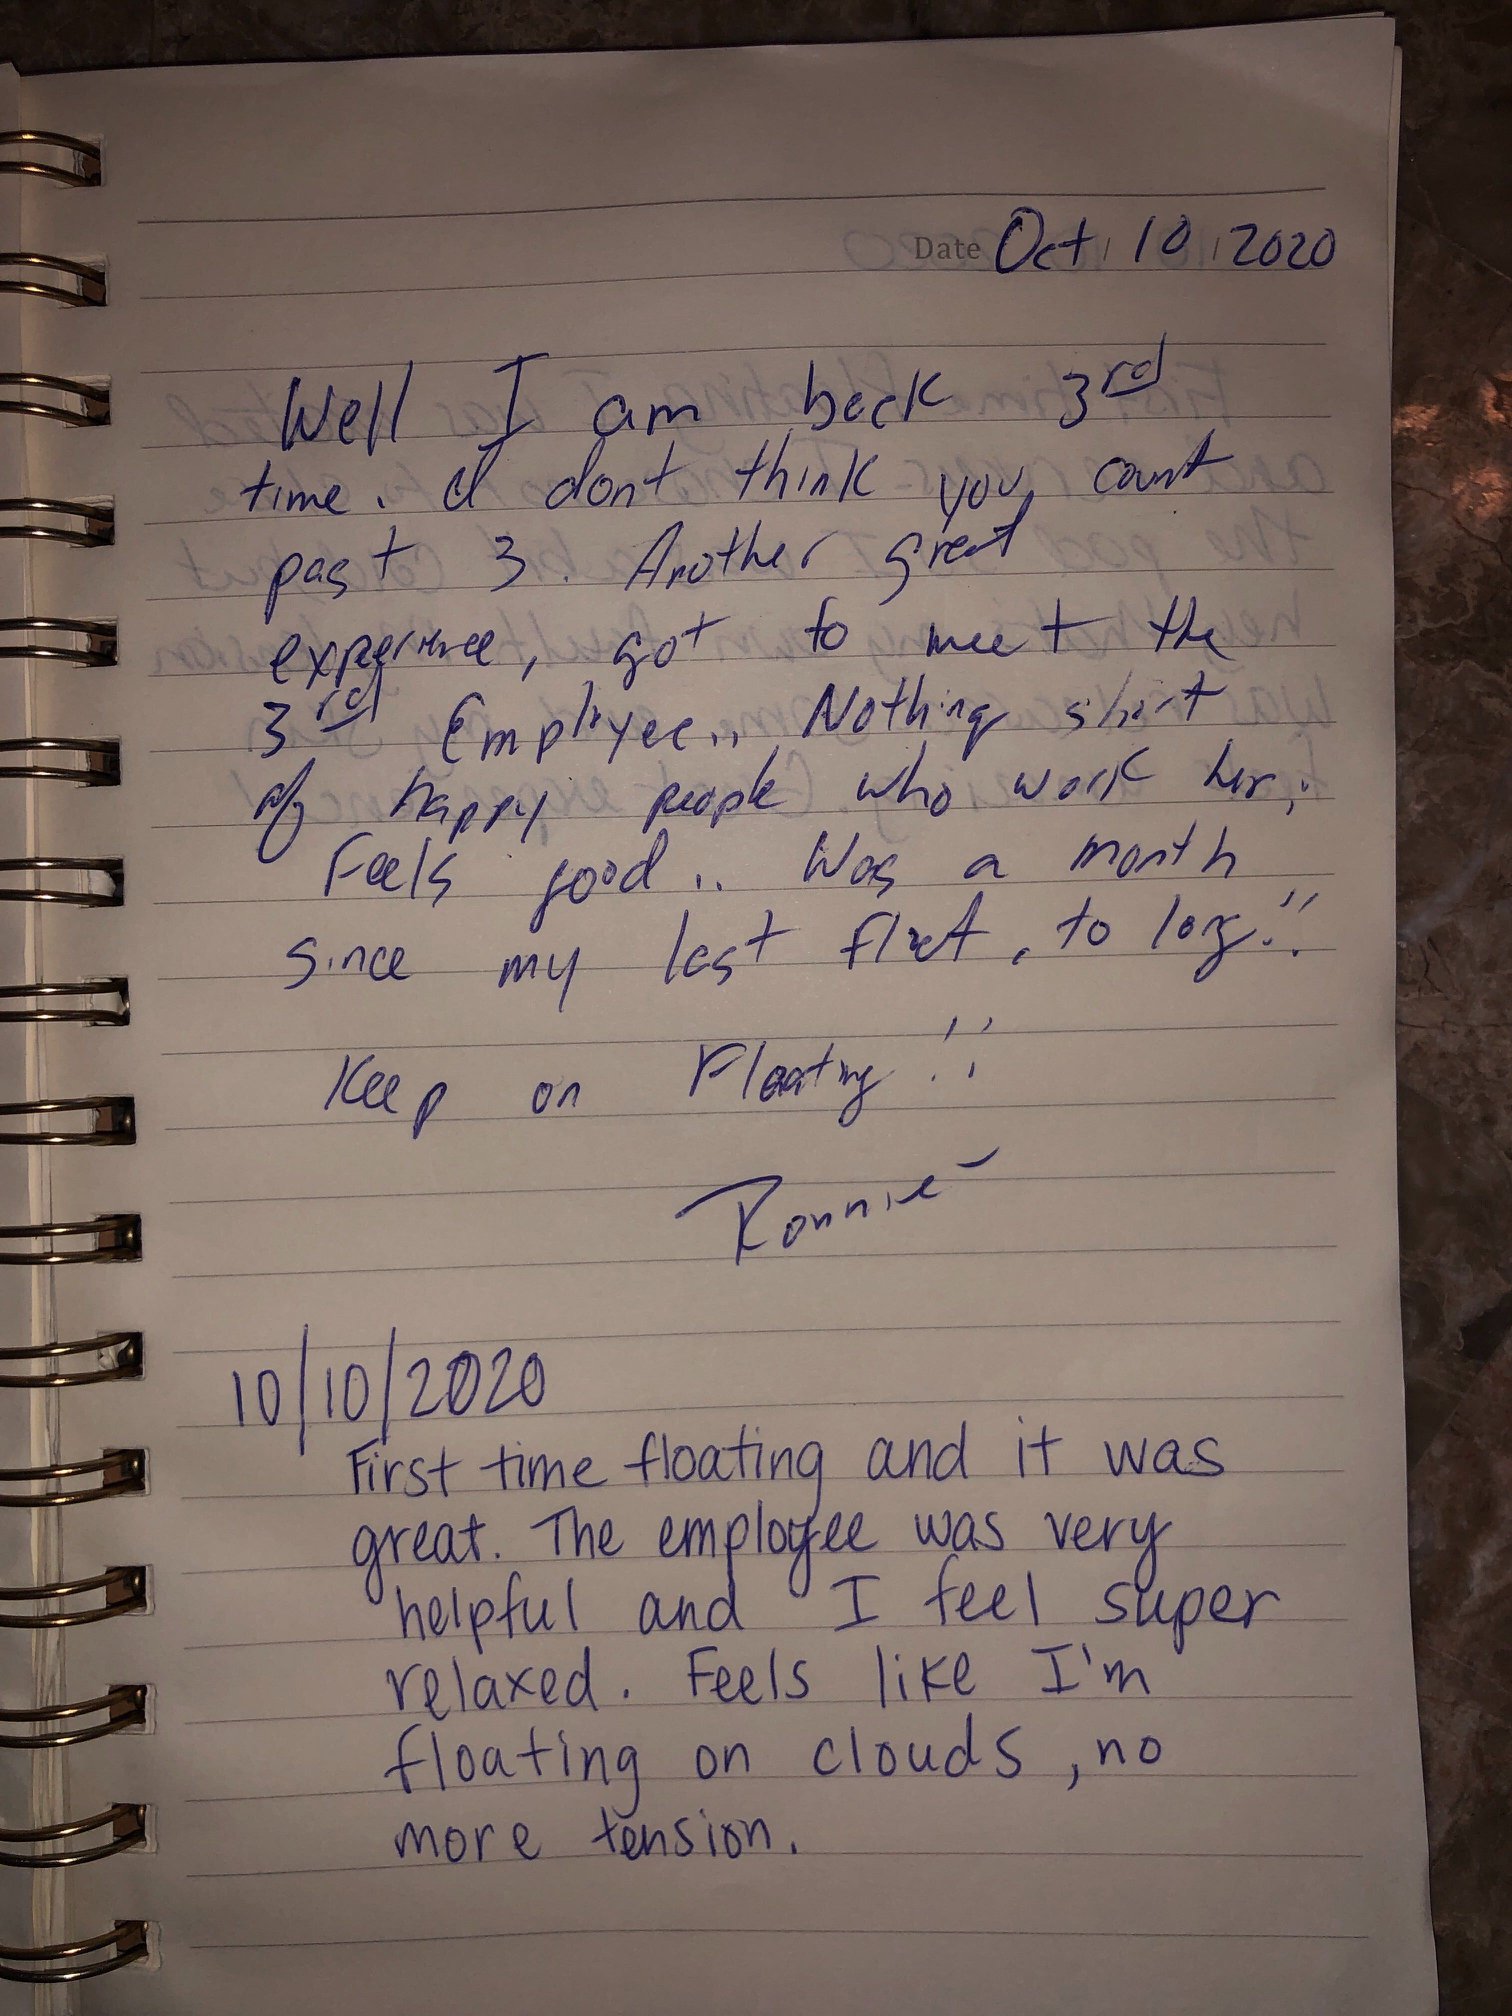 Date Oct / 10 / 2020
Well I am back 3rd
time. I dont think you count
past 3. Another great
experience, got to meet the
3rd Employee.. Nothing short
of happy people who work her.
Feels good.. Was a month
since my last float, to long!!
Keep on Floating!!
Ronnie
10/10/2020
First time floating and it was
great. The employee was very
helpful and I feel super
relaxed. Feels like I'm
floating on clouds, no
more tension.